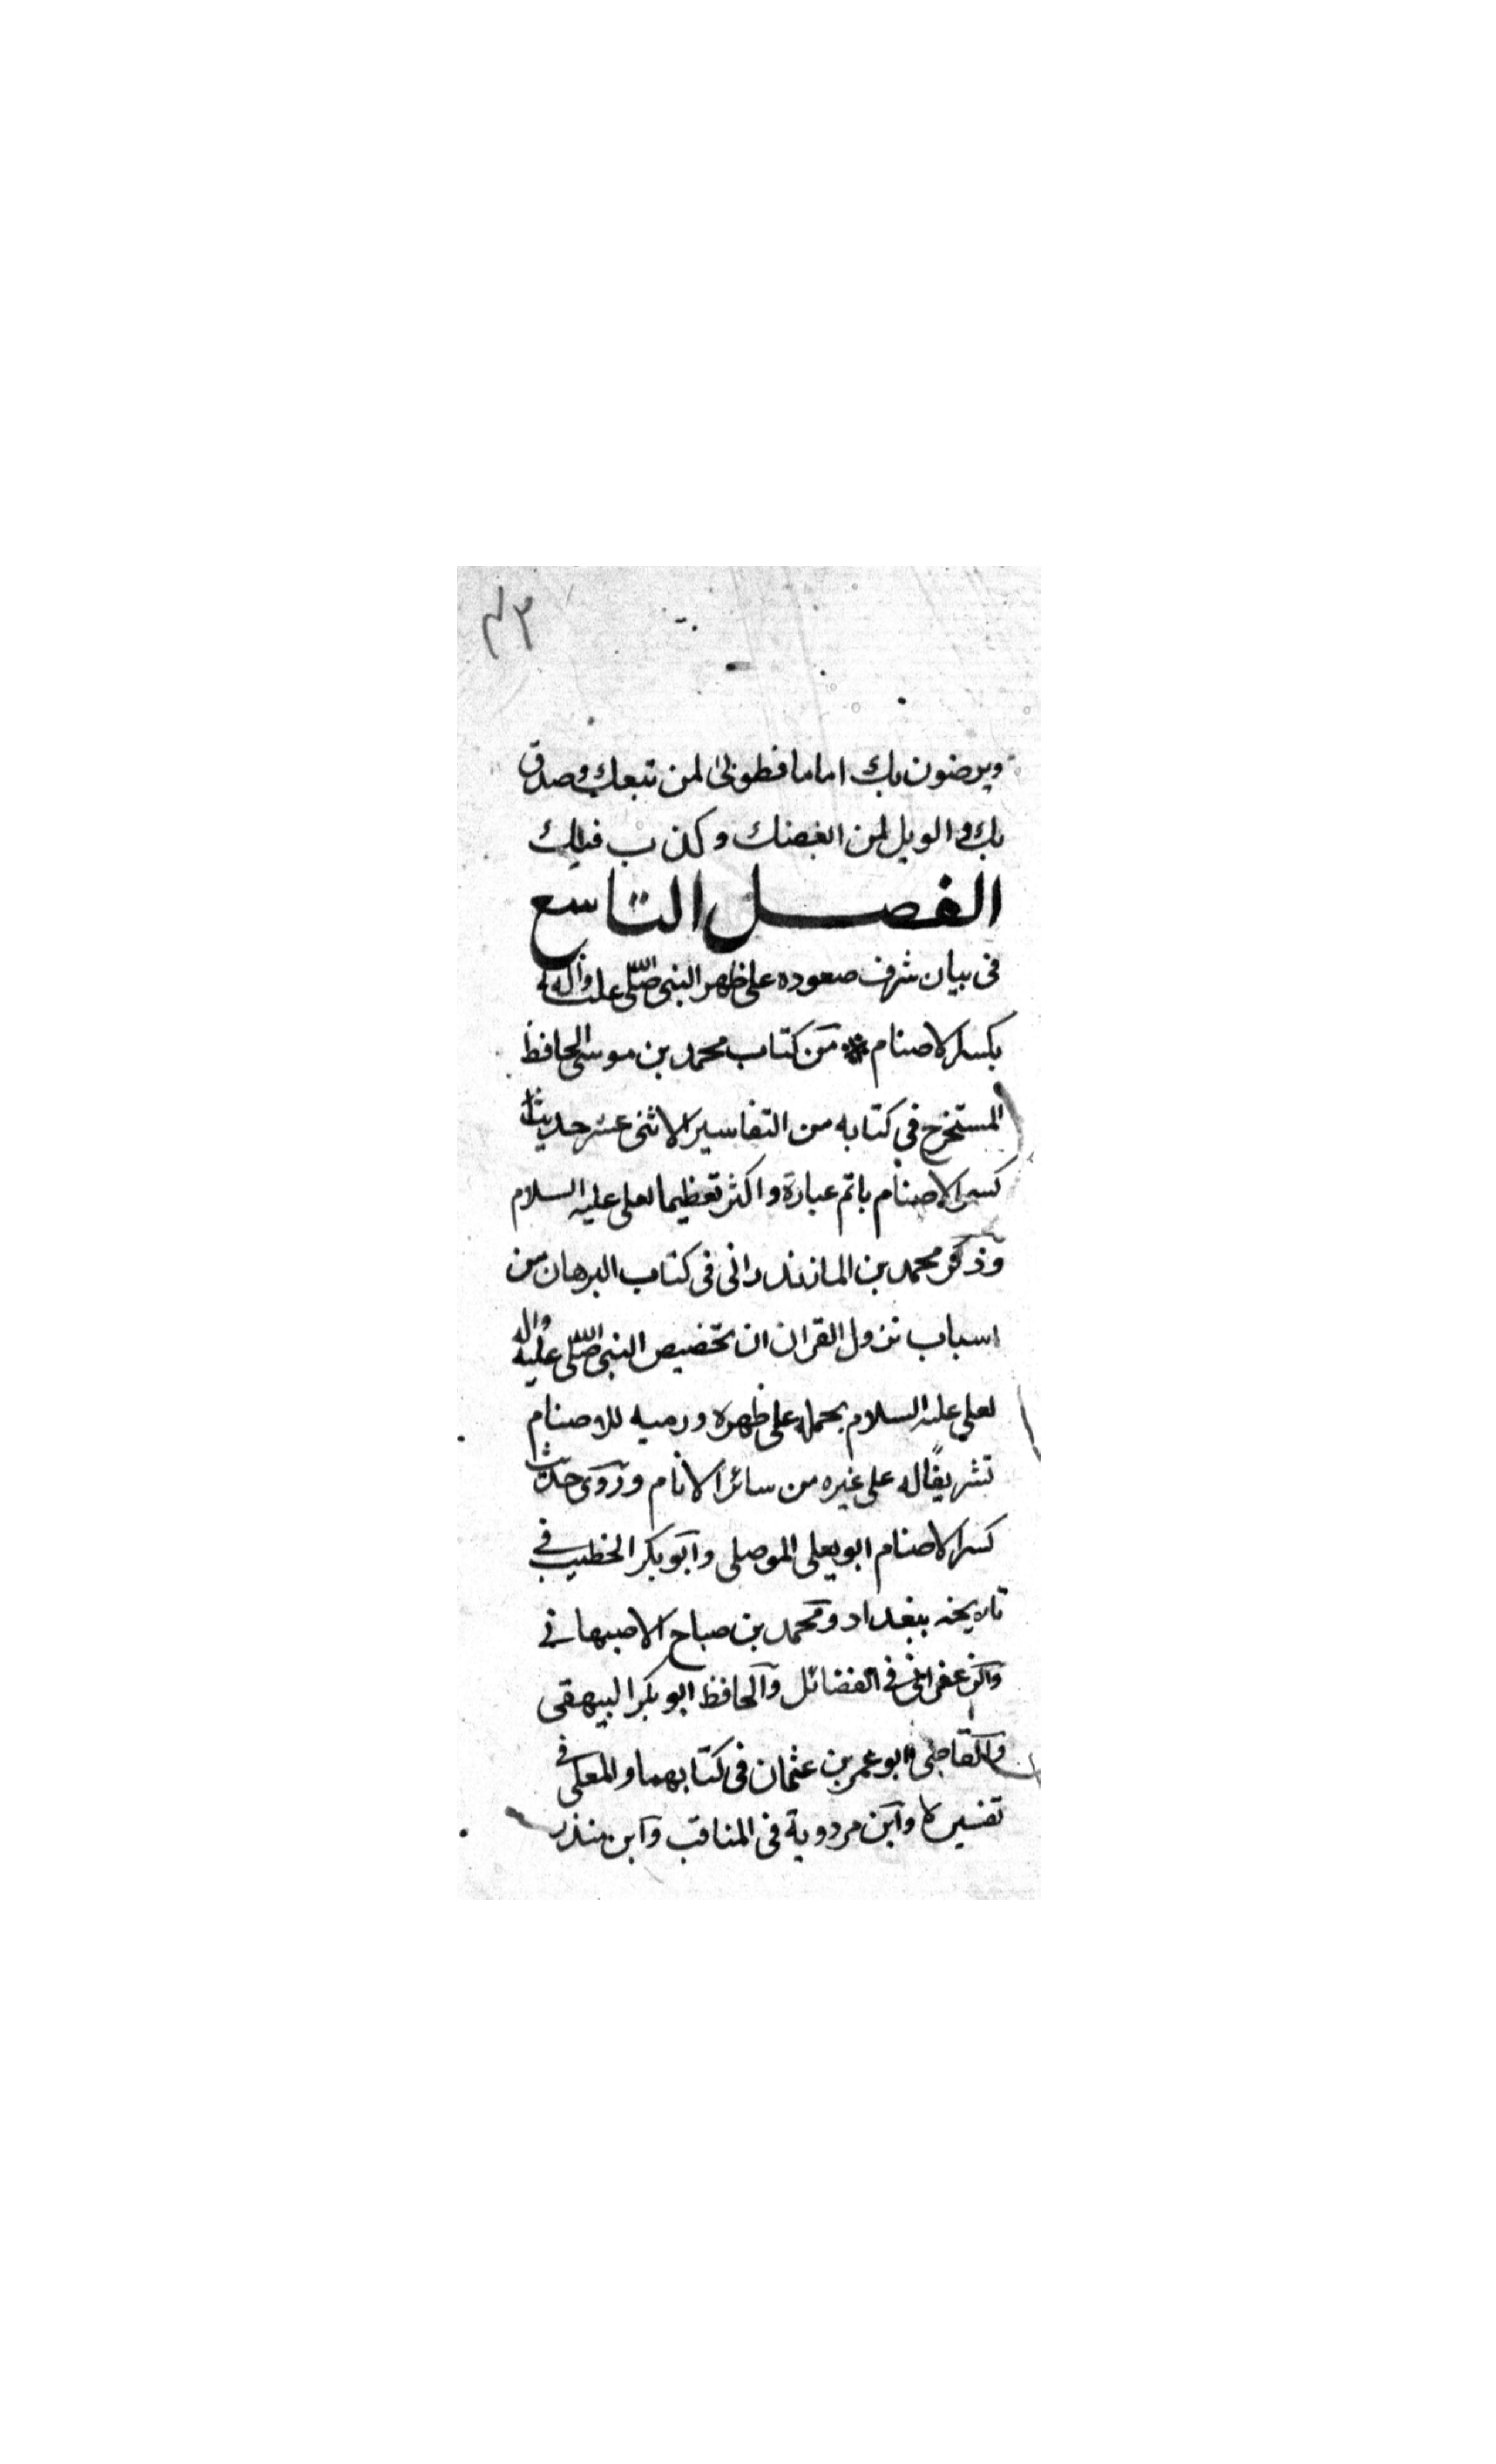 ٤٣
ويرضون بك اماما فطوبى لمن تبعك وصدق
بك والويل لمن ابغضك وكذب فيك
الفصل التاسع
فى بيان شرف صعوده على ظهر النبى صلى الله عليه واله
بكسر الاصنام من كتاب محمد بن موسى الحافظ
المستخرج فى كتابه من التفاسير الاثنى عشر حديث
كسر الاصنام باتم عبارة واكثر تعظيما لعلى عليه السلام
وذكر محمد بن المازندرانى فى كتاب البرهان من
اسباب نزول القران ان تخصيص النبى صلى الله عليه واله
لعلي عليه السلام بحمله على ظهره ورميه للاصنام
تشريفًا له على غيره من سائر الانام وروى حديث
كسر الاصنام ابو يعلى الموصلى وابو بكر الخطيب فى
تاريخه ببغداد ومحمد بن صباح الاصبهانى
والزعفرانى فى الفضائل والحافظ ابو بكر البيهقى
والقاضى ابو عمر بن عثمان فى كتابهما والمعلى فى
تفسيره وابن مردوية فى المناقب وابن منذر